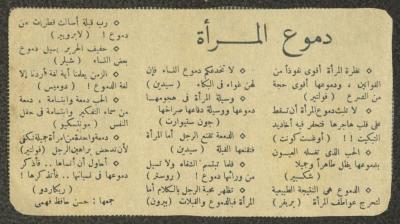 دموع المرأة
◇ نظرة المرأة أقوى نفوذاً من
القوانين ، ودموعها أقوى حجة
من الشرع ( فولتير )
◇ لا تلبث دموع المرأة أن تسقط
على قلب هاجرها فتحفر فيه أخاديد
التبكيت !! ( أوغست كونت )
◇ الحب الذى تغسله العيون
بدموعها يظل طاهراً وجميلا
( شكسبير )
◇ الدموع هى النتيجة الطبيعية
لتحرج عواطف المرأة
◇ لا تخدعكم دموع النساء فإن
لهن غواء فى البكاء ( سيدين )
◇ وسيلة المرأة فى هجومها
دموعها ووسيلة دفاعها صراخها
( جون ستيوارت )
◇ الدمعة تقنع الرجل أما المرأة
فتقنعها القبلة ( سيدين )
◇ فلما تبتسم الشفاه ولا تسيل
من ورائها دموع ! ( بروستر )
◇ تظهر محبة الرجل بالكلام أما
المرأة فبالدموع والقبلات ( بيرون )
◇ رب قبلة أسالت قطرات من
دموع ! ( لابرويير )
◇ حفيف الحرير يسيل دموع
بعض النساء ( شيلر )
◇ الزمن يعلمنا أية لغة أردنا إلا
لغة الدموع ! ( دوميس )
◇ الحب دمعة وابتسامة ، دمعة
من سماء التفكير وابتسامة فى حقل
النفس ( مونتسكيو )
◇ دمعة واحدة من امرأة جميلة تكفى
لأن تدحض براهين الرجل ( فولتير )
◇ أحاول أن أنساها .. فأذكر
دموعها فى نسيانها .. فأتذكرها !
( ريكاردو )
جمعها : حسن حافظ فهمى